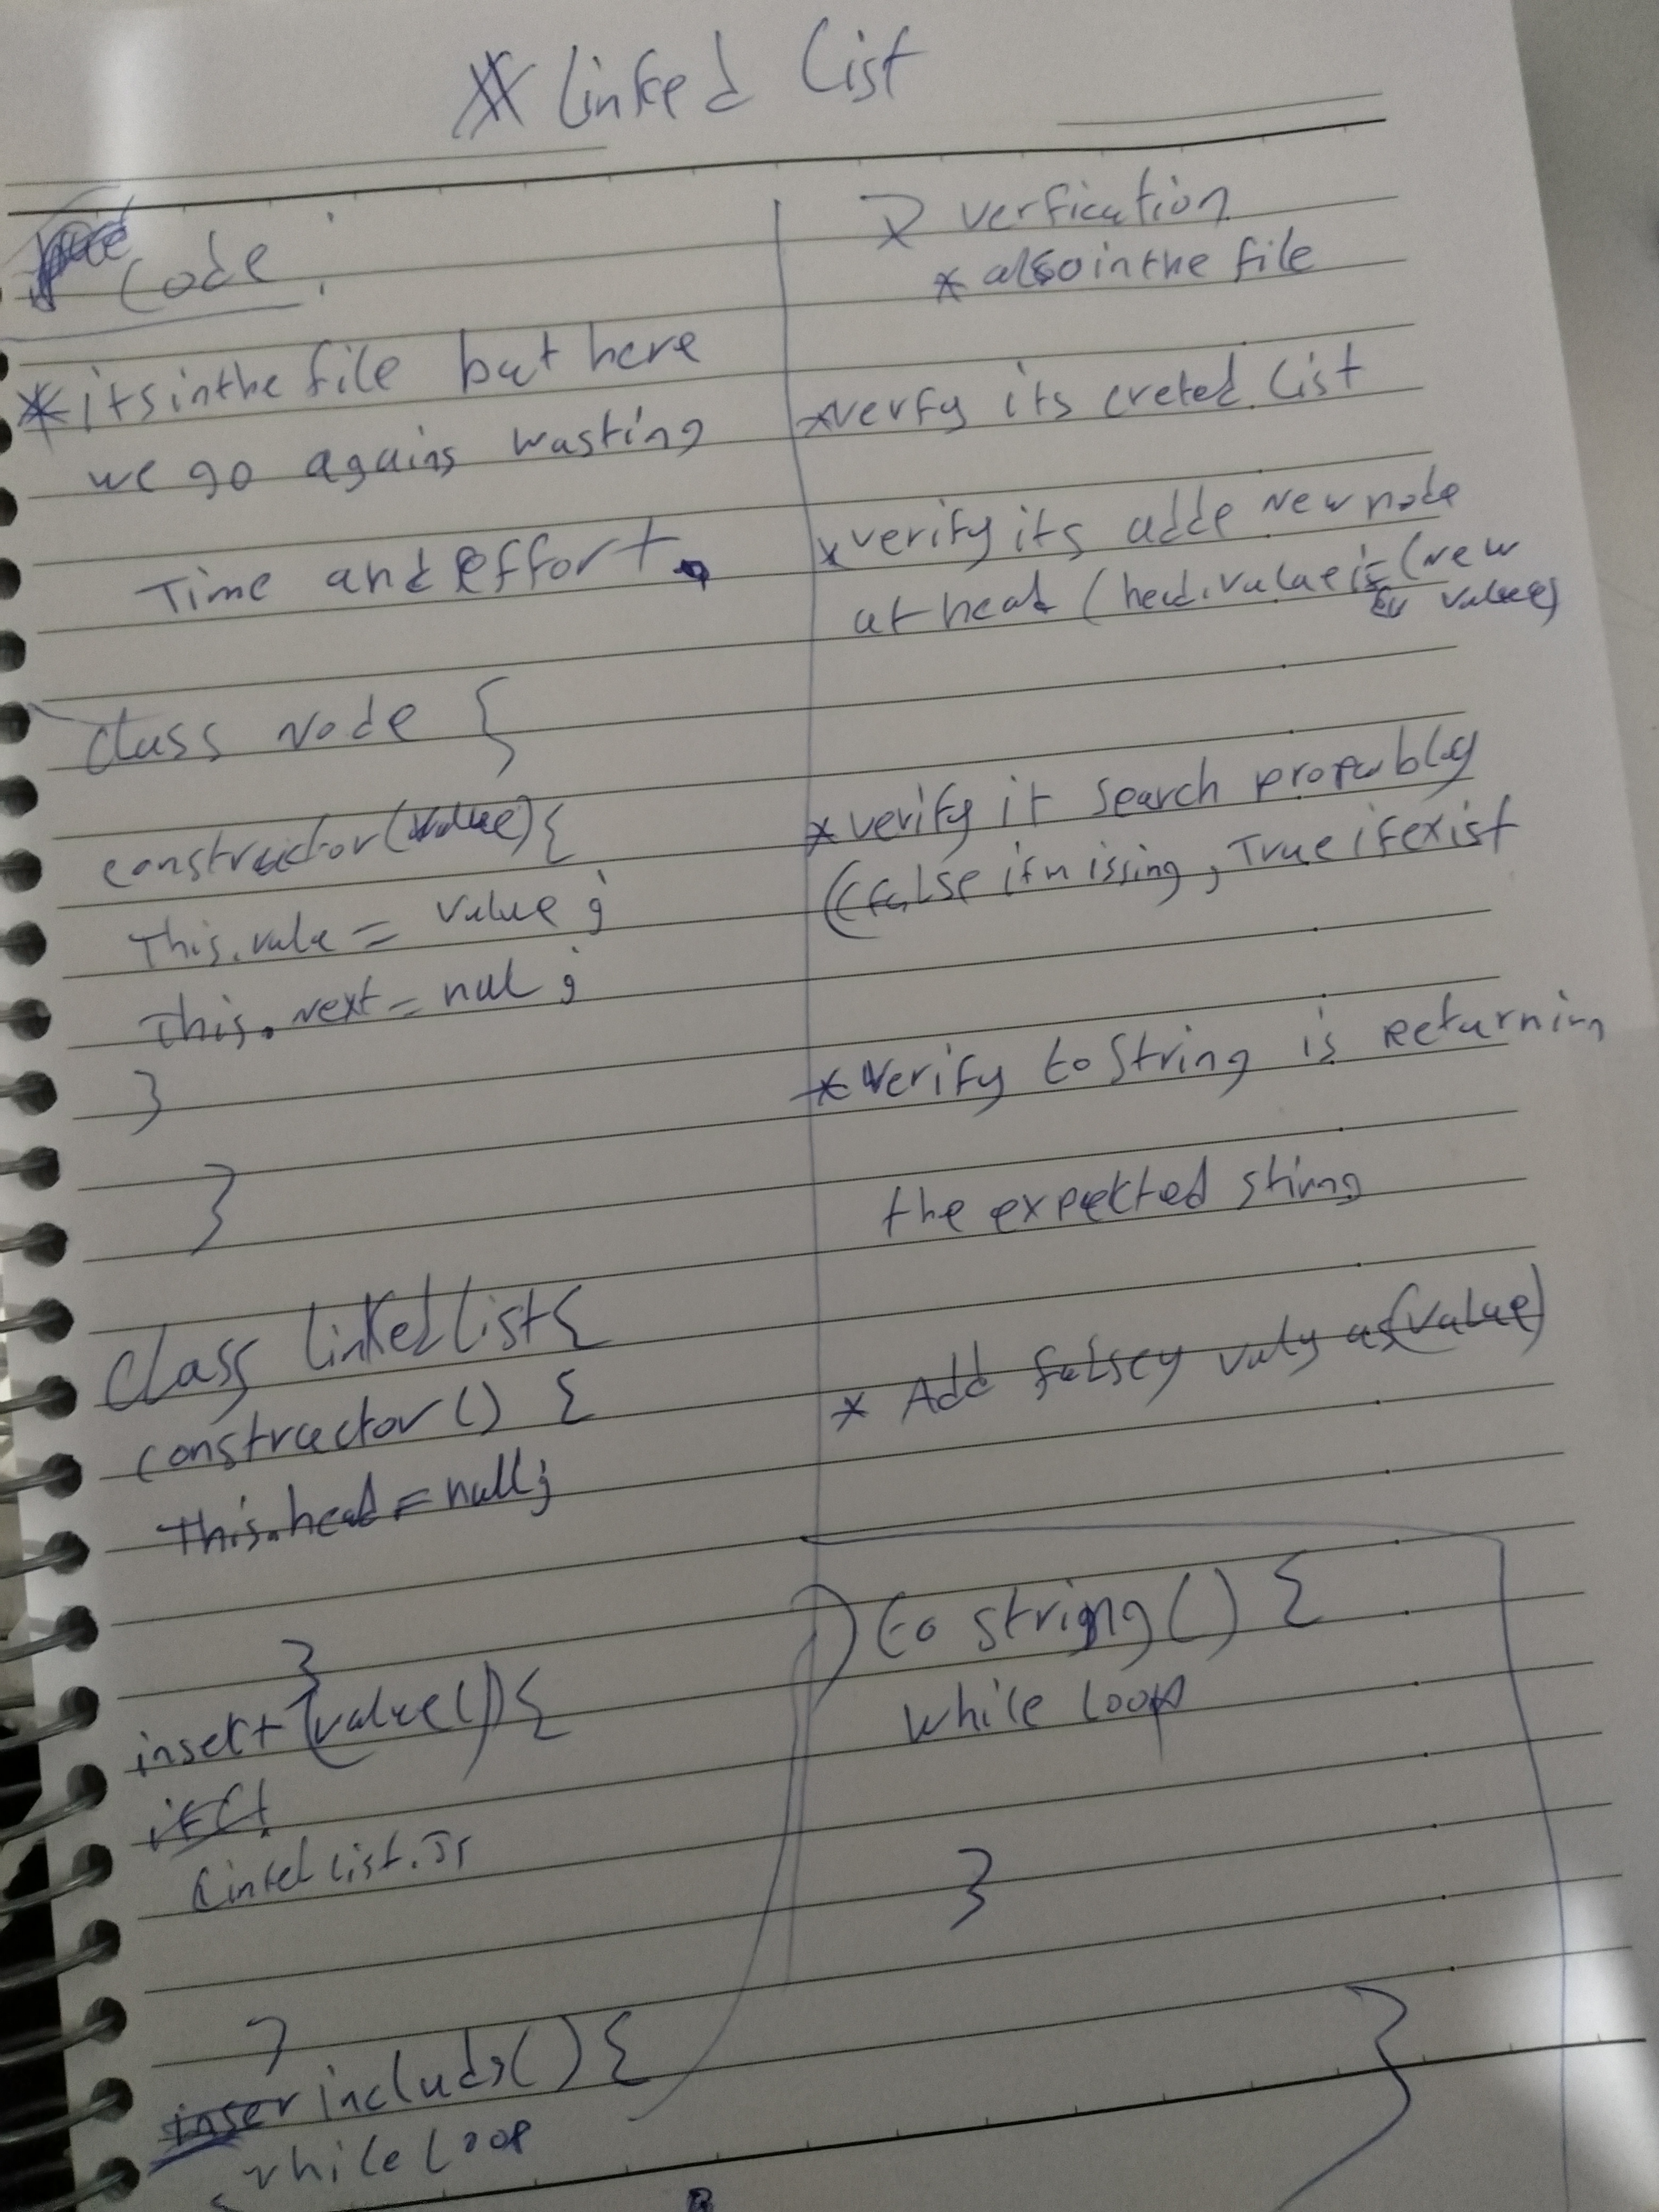 Linked List
Code :
* itsinthe file but here
we go agains wasting
Time and effort.
class Node {
constructor(value){
This.vale = value ;
This.next = null ;
}
}
Class linked list{
constructor () {
This.head = null ;
}
insert (value()){
if(!
linked list.Js
}
inser includs() {
while loop
verfication
* also in the file
* verfy its creted List
* verify its adde New node
at head (head.value is (new
value)
* verify it search propably
(false if missing , True if exist
* verify toString is returnin
the expected string
* Add falsey valy as (value)
to string () {
while loop
}
}